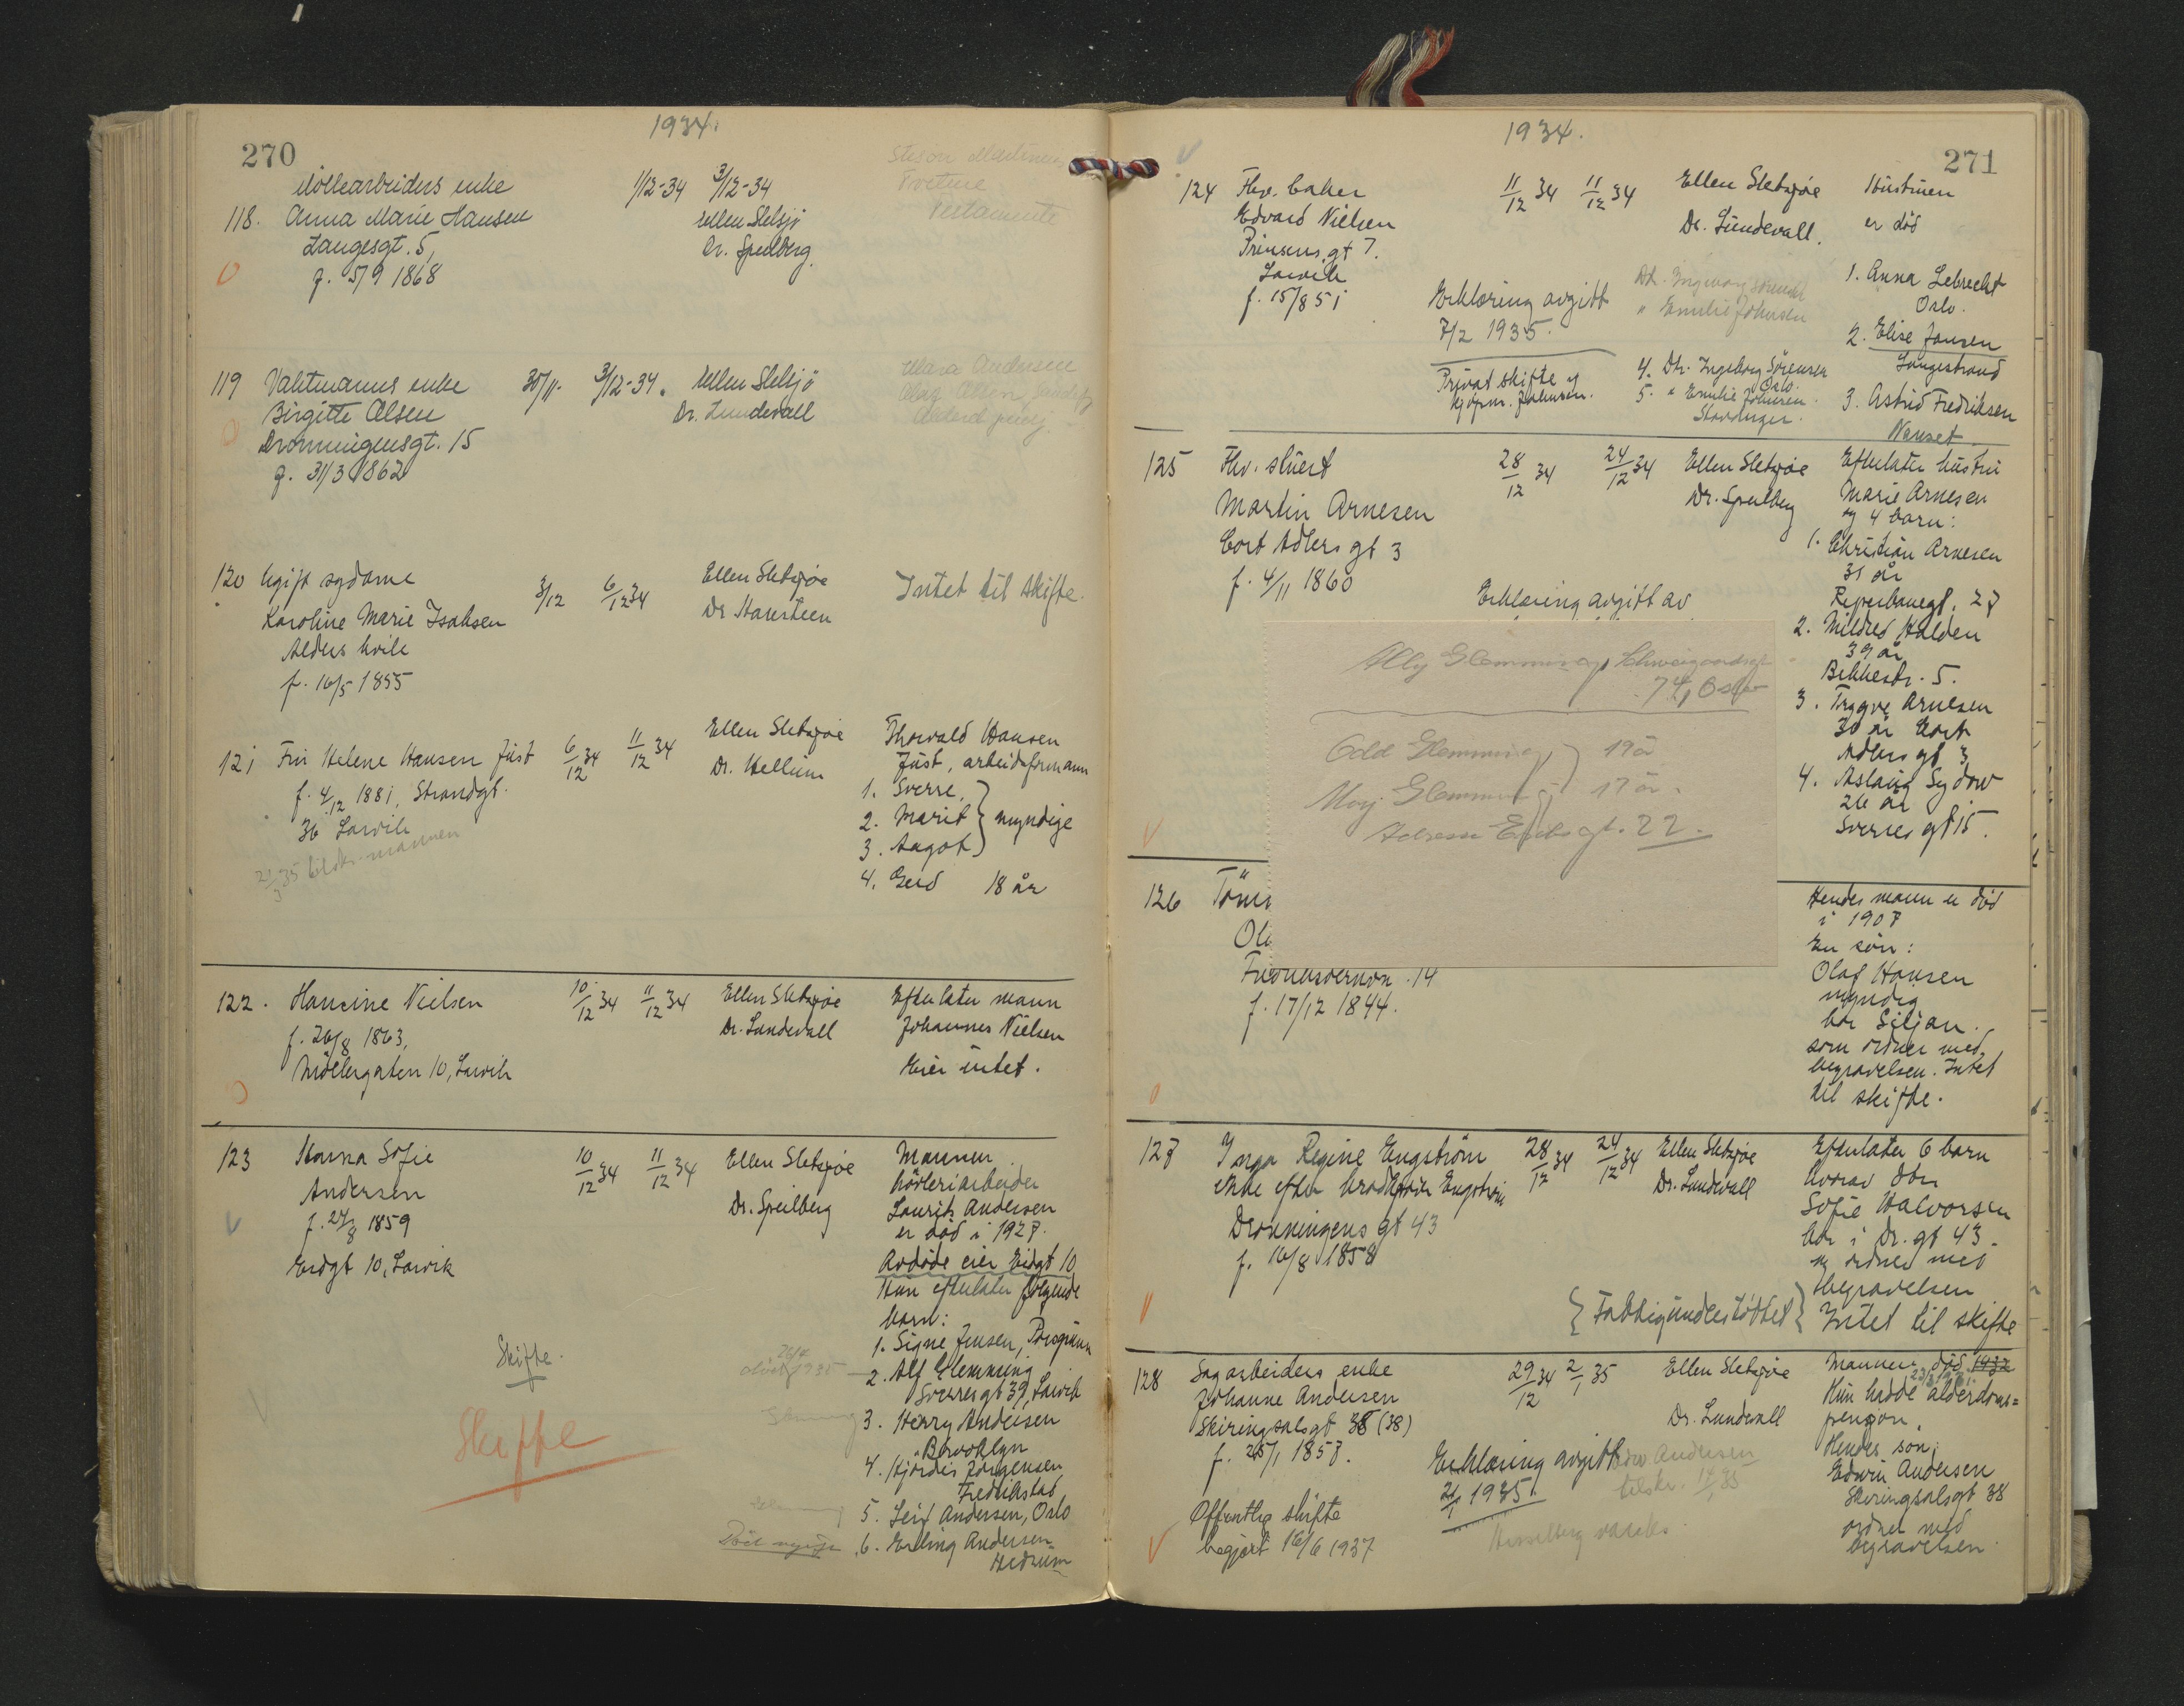 1934.
270
enke
118. Anna Marie Hansen
Langesgt. 5,
f. 5/9 1868
1/12-34 3/12-34
Ellen Sletsjö
Dr. Speilberg
Testamente
119 Vaktmanns enke
Birgitte Olsen
Dronningensgt. 15
f. 31/3 1862
30/11. 3/12-34.
Ellen Sletsjö
Dr. Lundevall
120 Ugift sydame
Karoline Marie Isaksen
Alders hvile
f. 16/5 1855
3/12 6/12 34
Ellen Sletsjøe
Dr Hansteen
Intet til skifte.
121 Fru Helene Hansen Just
f. 4/12 1881, Strandgt.
36 Larvik
6/12 34 11/12 34
Ellen Sletsjøe
Dr. Hellum
Thorvald Hansen
Just, arbeidsformann
1. Sverre,
2. Marit } myndige
3. Aagot
4. Gerd 18 år
122. Hansine Nielsen
f. 26/8 1863,
Möllergaten 10, Larvik
10/12 34 11/12 34
Ellen Sletsjøe
Dr. Lundevall
Efterlater mann
Johannes Nielsen
Eier intet.
123 Hanna Sofie
Andersen
f. 24/8 1859
Eidgt 10, Larvik
10/12 34 11/12 34
Ellen Sletsjøe
Dr. Speilberg
Mannen
høvleriarbeider
Laurits Andersen
er död i 1927.
Avdöde eier Eidgt 10
Hun efterlater følgende
barn:
1. Signe Jensen, Porsgrunn
2. Alf Glemming
Sverresgt 39, Larvik
3. Henry Andersen
Brooklyn
4. Hjördis Jörgensen
Fredrikstad
5. Leif Andersen, Oslo
6. Erling Andersen
Hedrum
Skifte.
Skifte
1934.
271
124 Fhv. baker
Edvard Nielsen
Prinsens gt 7.
Larvik
f. 15/8 51
11/12 34 11/12 34
Ellen Sletsjøe
Dr. Lundevall.
Hustruen
er död
1. Anna Lebrecht
Oslo.
2. Elise Jansen
Langestrand
3. Astrid Fredriksen
Nanset.
Dtr. Ingeborg Sörensen
" Emilie Johnsen
4. Dtr. Ingeborg Sörensen
Oslo.
5. " Emilie Johnsen
Stavanger.
Erklæring avgitt
7/2 1935.
Privat skifte v
kjöpm. Johnsen.
125 Fhv. stuert
Martin Arnesen
Cort Adlers gt 3
f. 4/11 1860
28/12 34 24/12 34
Ellen Sletsjøe
Dr. Speilberg
Erklæring avgitt av
Efterlater hustru
Marie Arnesen
og 4 barn:
1. Christian Arnesen
31 år
Reperbanegt. 27
2. Mildred Halden
39 år
Bekkestr. 5.
3. Trygve Arnesen
30 år Cort
Adlers gt 3
4. Aslaug Sydow
26 år
Sverres gt 15.
Ally Glemming, Schweigaardsgt
74, Oslo
Odd Glemming } 19 år
May Glemming } 17 år.
Adresse gt. 22.
126
f. 17/12 1844.
Hendes mann er död
i 1907
En sön:
Olaf Hansen
myndig
bor Siljan.
som ordner med
begravelsen. Intet
til skifte.
127 Inga Regine Engström
enke efter Engström
Dronningens gt 43
f. 16/8 1858
28/12 34 24/12 34
Ellen Sletsjøe
Dr. Lundevall
Efterlater 6 barn
hvorav dtr
Sofie Halvorsen
bor i Dr. gt 43.
og ordner med
begravelsen
{Fattigunderstöttet} Intet til skifte
128 Sagarbeiders enke
Johanne Andersen
Skiringsalsgt 38 (38)
f. 25/1 1857.
29/12 34 2/1 35
Ellen Sletsjøe
Dr. Lundevall
Mannen död 1932
Hun hadde alderdoms=
pensjon.
Hendes sön
Edwin Andersen
Skiringsalsgt 38
ordner med
begravelsen.
Erklæring avgitt
21/1 1935.
Offentlig skifte
begjært 16/6 1937